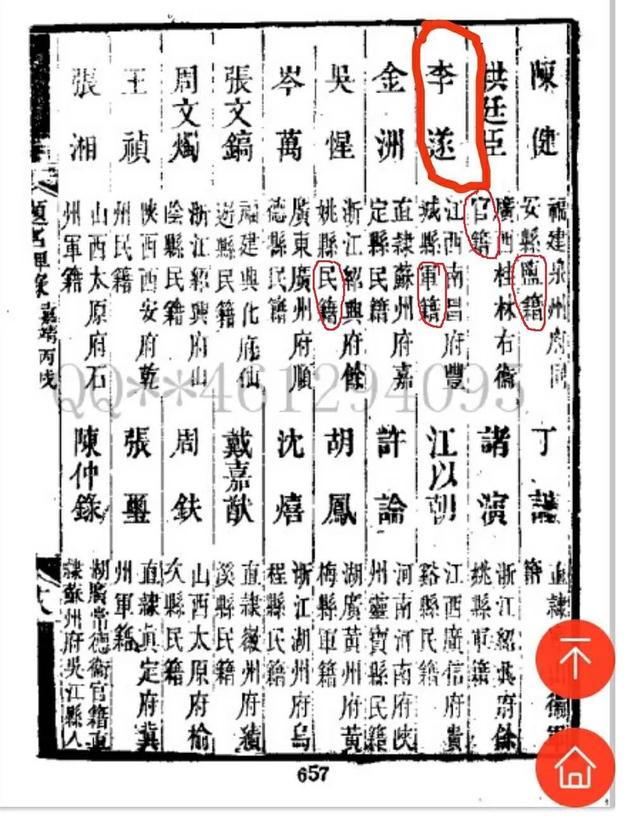 陳健
福建泉州府同
安縣鹽籍
洪廷臣
廣西桂林右衞
官籍
李遂
江西南昌府豐
城縣軍籍
金洲
直隸蘇州府嘉
定縣民籍
吳惺
浙江紹興府餘
姚縣民籍
岑萬
廣東廣州府順
德縣民籍
張文鎬
福建興化府仙
遊縣民籍
周文燭
浙江紹興府山
陰縣民籍
王禎
陝西西安府乾
州民籍
張湘
山西太原府石
州軍籍
丁
直隸 山衞軍
籍
諸演
浙江紹興府餘
姚縣軍籍
江以朝
江西廣信府貴
谿縣民籍
許論
河南河南府陝
州靈寶縣民籍
胡鳳
湖廣黃州府黃
梅縣軍籍
沈熺
浙江湖州府烏
程縣民籍
戴嘉猷
直隸徽州府績
溪縣民籍
周鈇
山西太原府榆
次縣民籍
張璽
直隸真定府冀
州軍籍
陳仲錄
湖廣常德衞官籍直
隸蘇州府吳江縣人
題名碑錄 嘉靖丙戌
657
QQ**461294095